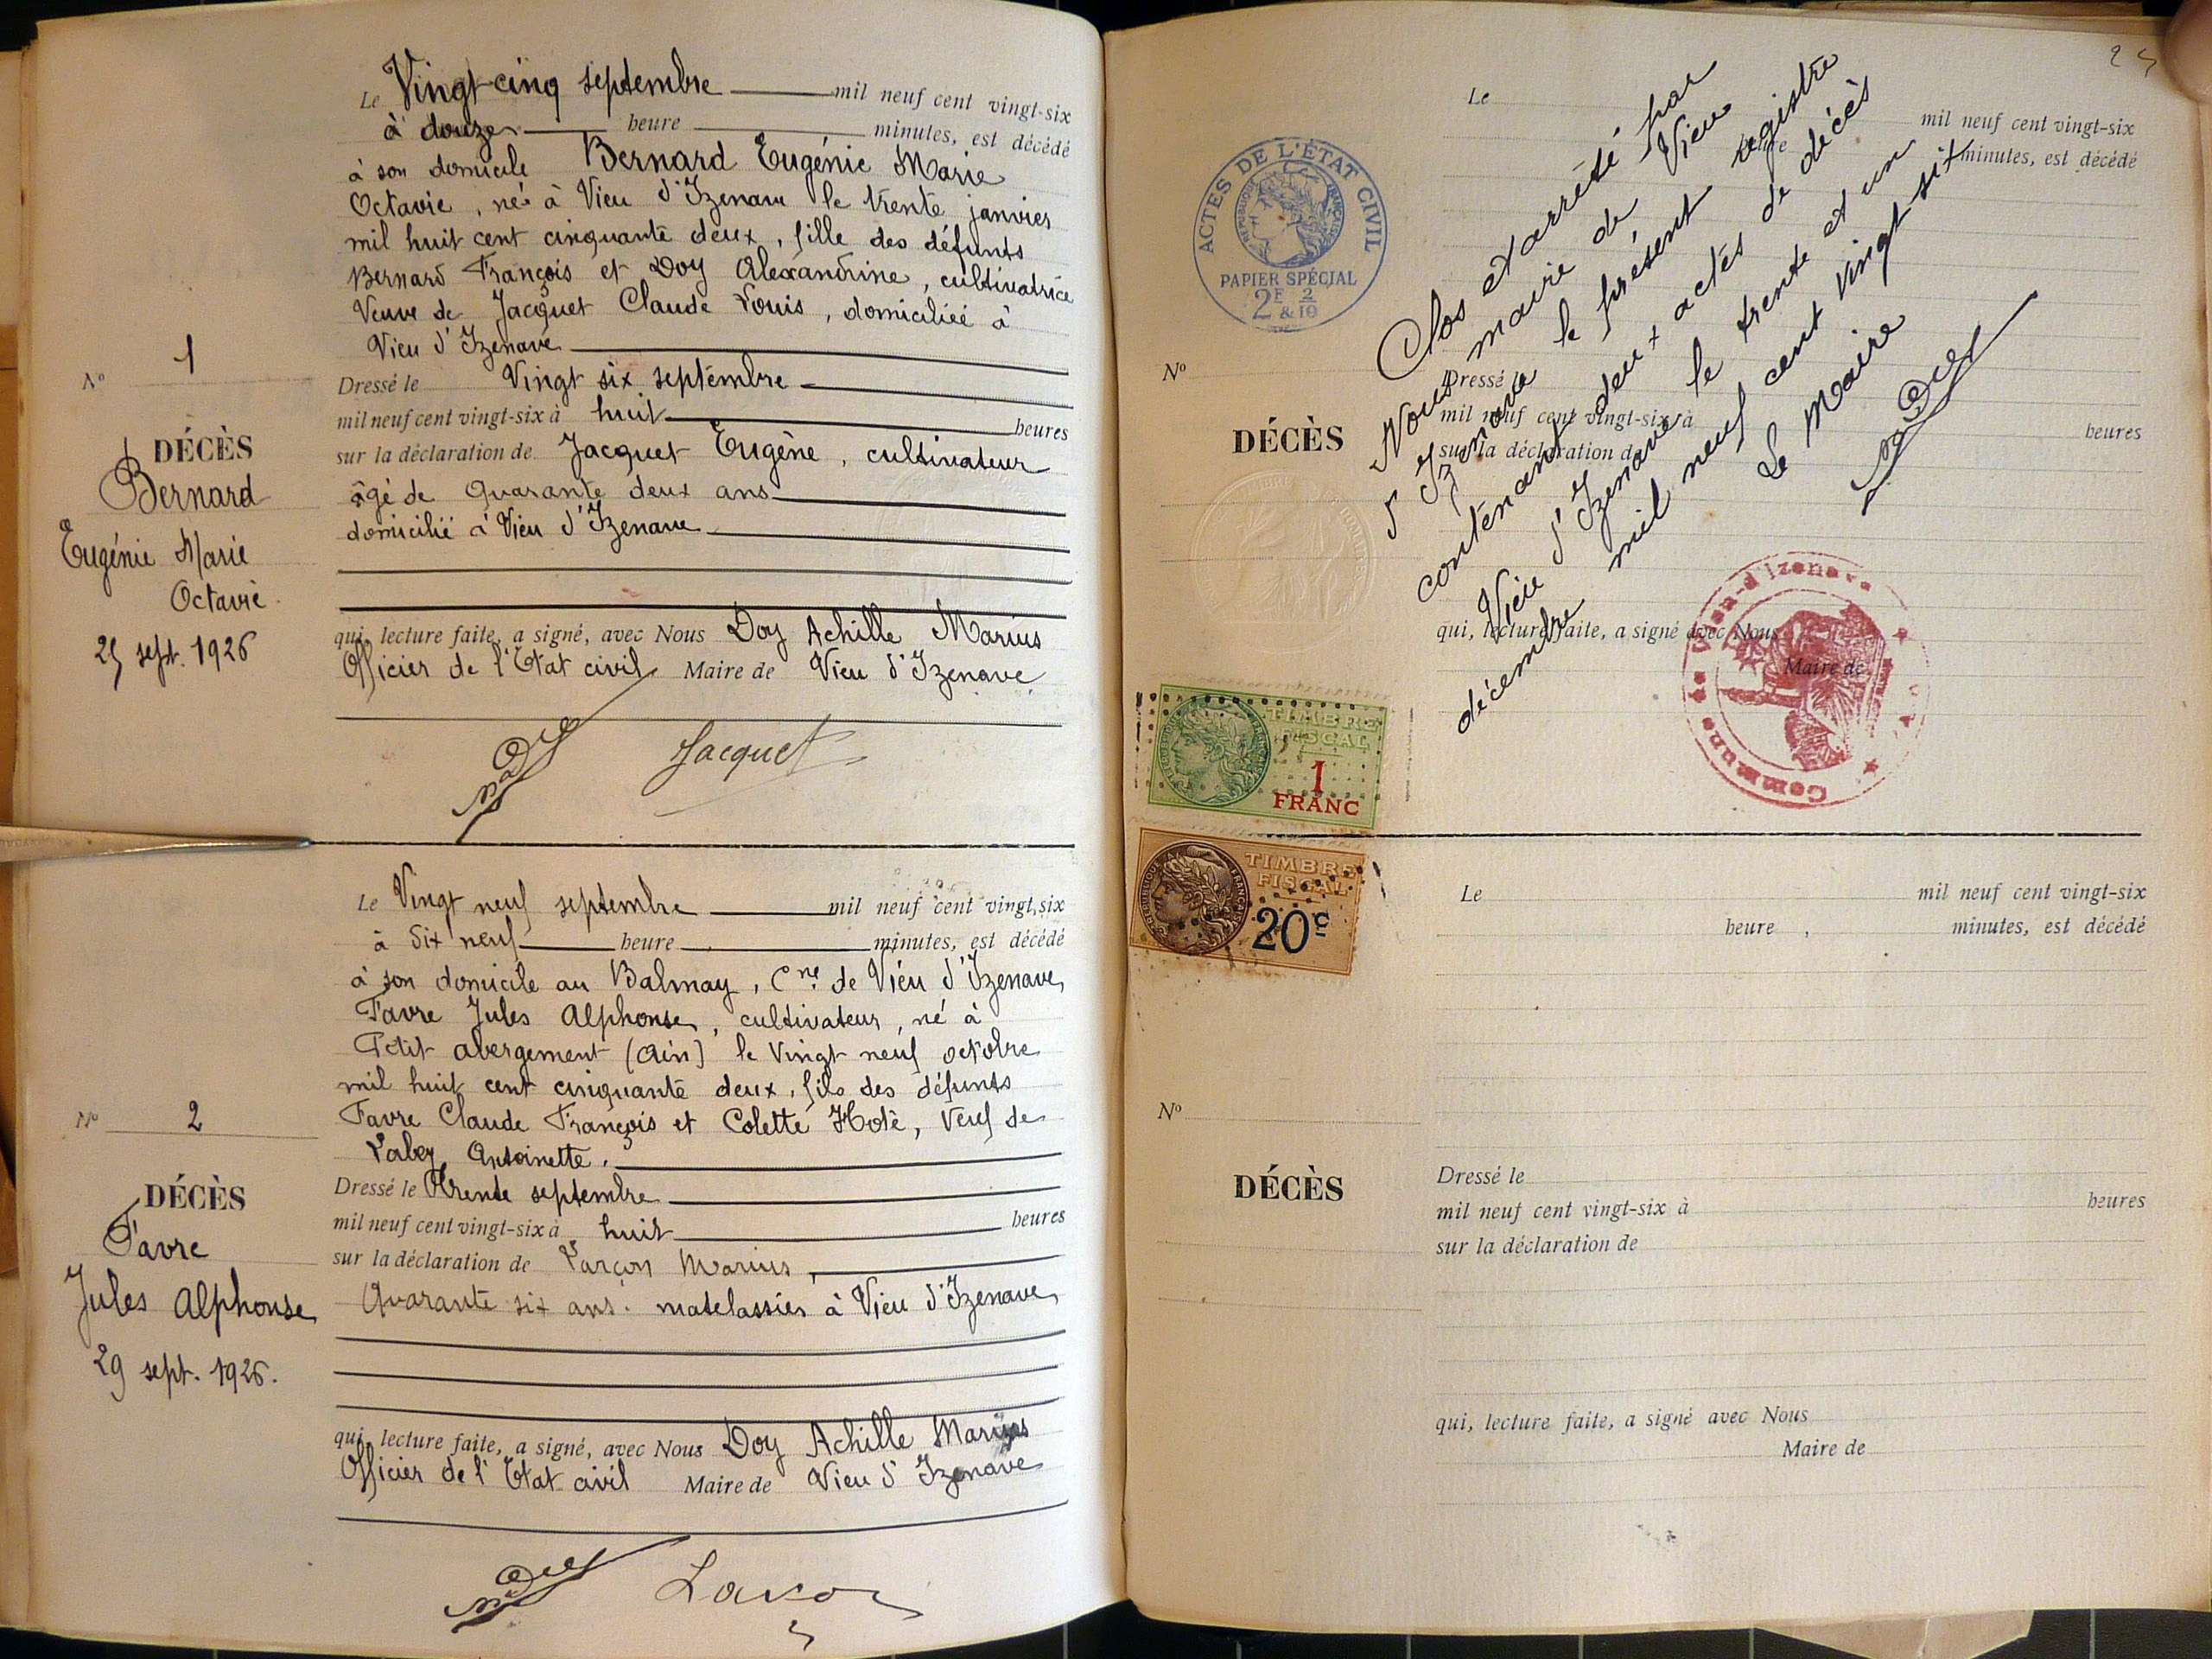 Le Vingt-cinq septembre mil neuf cent vingt-six
à douze heure minutes, est décédé
à son domicile Bernard Eugénie Marie
Octavie, née à Vieu d'Izenave le trente janvier
mil huit cent cinquante deux, fille des défunts
Bernard François et Doy Alexandrine, cultivatrice
Veuve de Jacquet Claude Louis, domiciliée à
Vieu d'Izenave
Dressé le Vingt six septembre
mil neuf cent vingt-six à huit heures
sur la déclaration de Jacquet Eugène, cultivateur
âgé de quarante deux ans
domicilié à Vieu d'Izenave
qui, lecture faite, a signé, avec Nous Doy Achille Marius
Officier de l'Etat civil Maire de Vieu d'Izenave
Jacquet
No 1
DÉCÈS
Bernard
Eugénie Marie
Octavie
25 sept. 1926
Le Vingt neuf septembre mil neuf cent vingt-six
à dix neuf heure minutes, est décédé
à son domicile au Balmay, Cne de Vieu d'Izenave,
Favre Jules Alphonse, cultivateur, né à
Petit abergement (Ain) le Vingt neuf octobre
mil huit cent cinquante deux, fils des défunts
Favre Claude François et Colette Hote, Veuf de
Antoinette.
Dressé le Trente septembre
mil neuf cent vingt-six à huit heures
sur la déclaration de Larçon Marius,
Quarante six ans. matelassier à Vieu d'Izenave
qui, lecture faite, a signé, avec Nous Doy Achille Marius
Officier de l'Etat civil Maire de Vieu d'Izenave
No 2
DÉCÈS
Favre
Jules Alphonse
29 sept. 1926.
ACTES DE L'ÉTAT CIVIL
RÉPUBLIQUE FRANÇAISE
PAPIER SPÉCIAL
2E & 2/10
Le mil neuf cent vingt-six
heure minutes, est décédé
No
DÉCÈS
Dressé le
mil neuf cent vingt-six à heures
sur la déclaration de
qui, lecture faite, a signé avec Nous
Maire de
Clos et arrêté par
Nous maire de Vieu
d'Izenave le présent registre
contenant deux actes de décès
Vieu d'Izenave le trente et un
décembre mil neuf cent vingt-six
Le Maire
Commune de Vieu-d'Izenave
TIMBRE
FISCAL
1
FRANC
TIMBRE
FISCAL
20c
Le mil neuf cent vingt-six
heure, minutes, est décédé
No
DÉCÈS
Dressé le
mil neuf cent vingt-six à heures
sur la déclaration de
qui, lecture faite, a signé avec Nous
Maire de